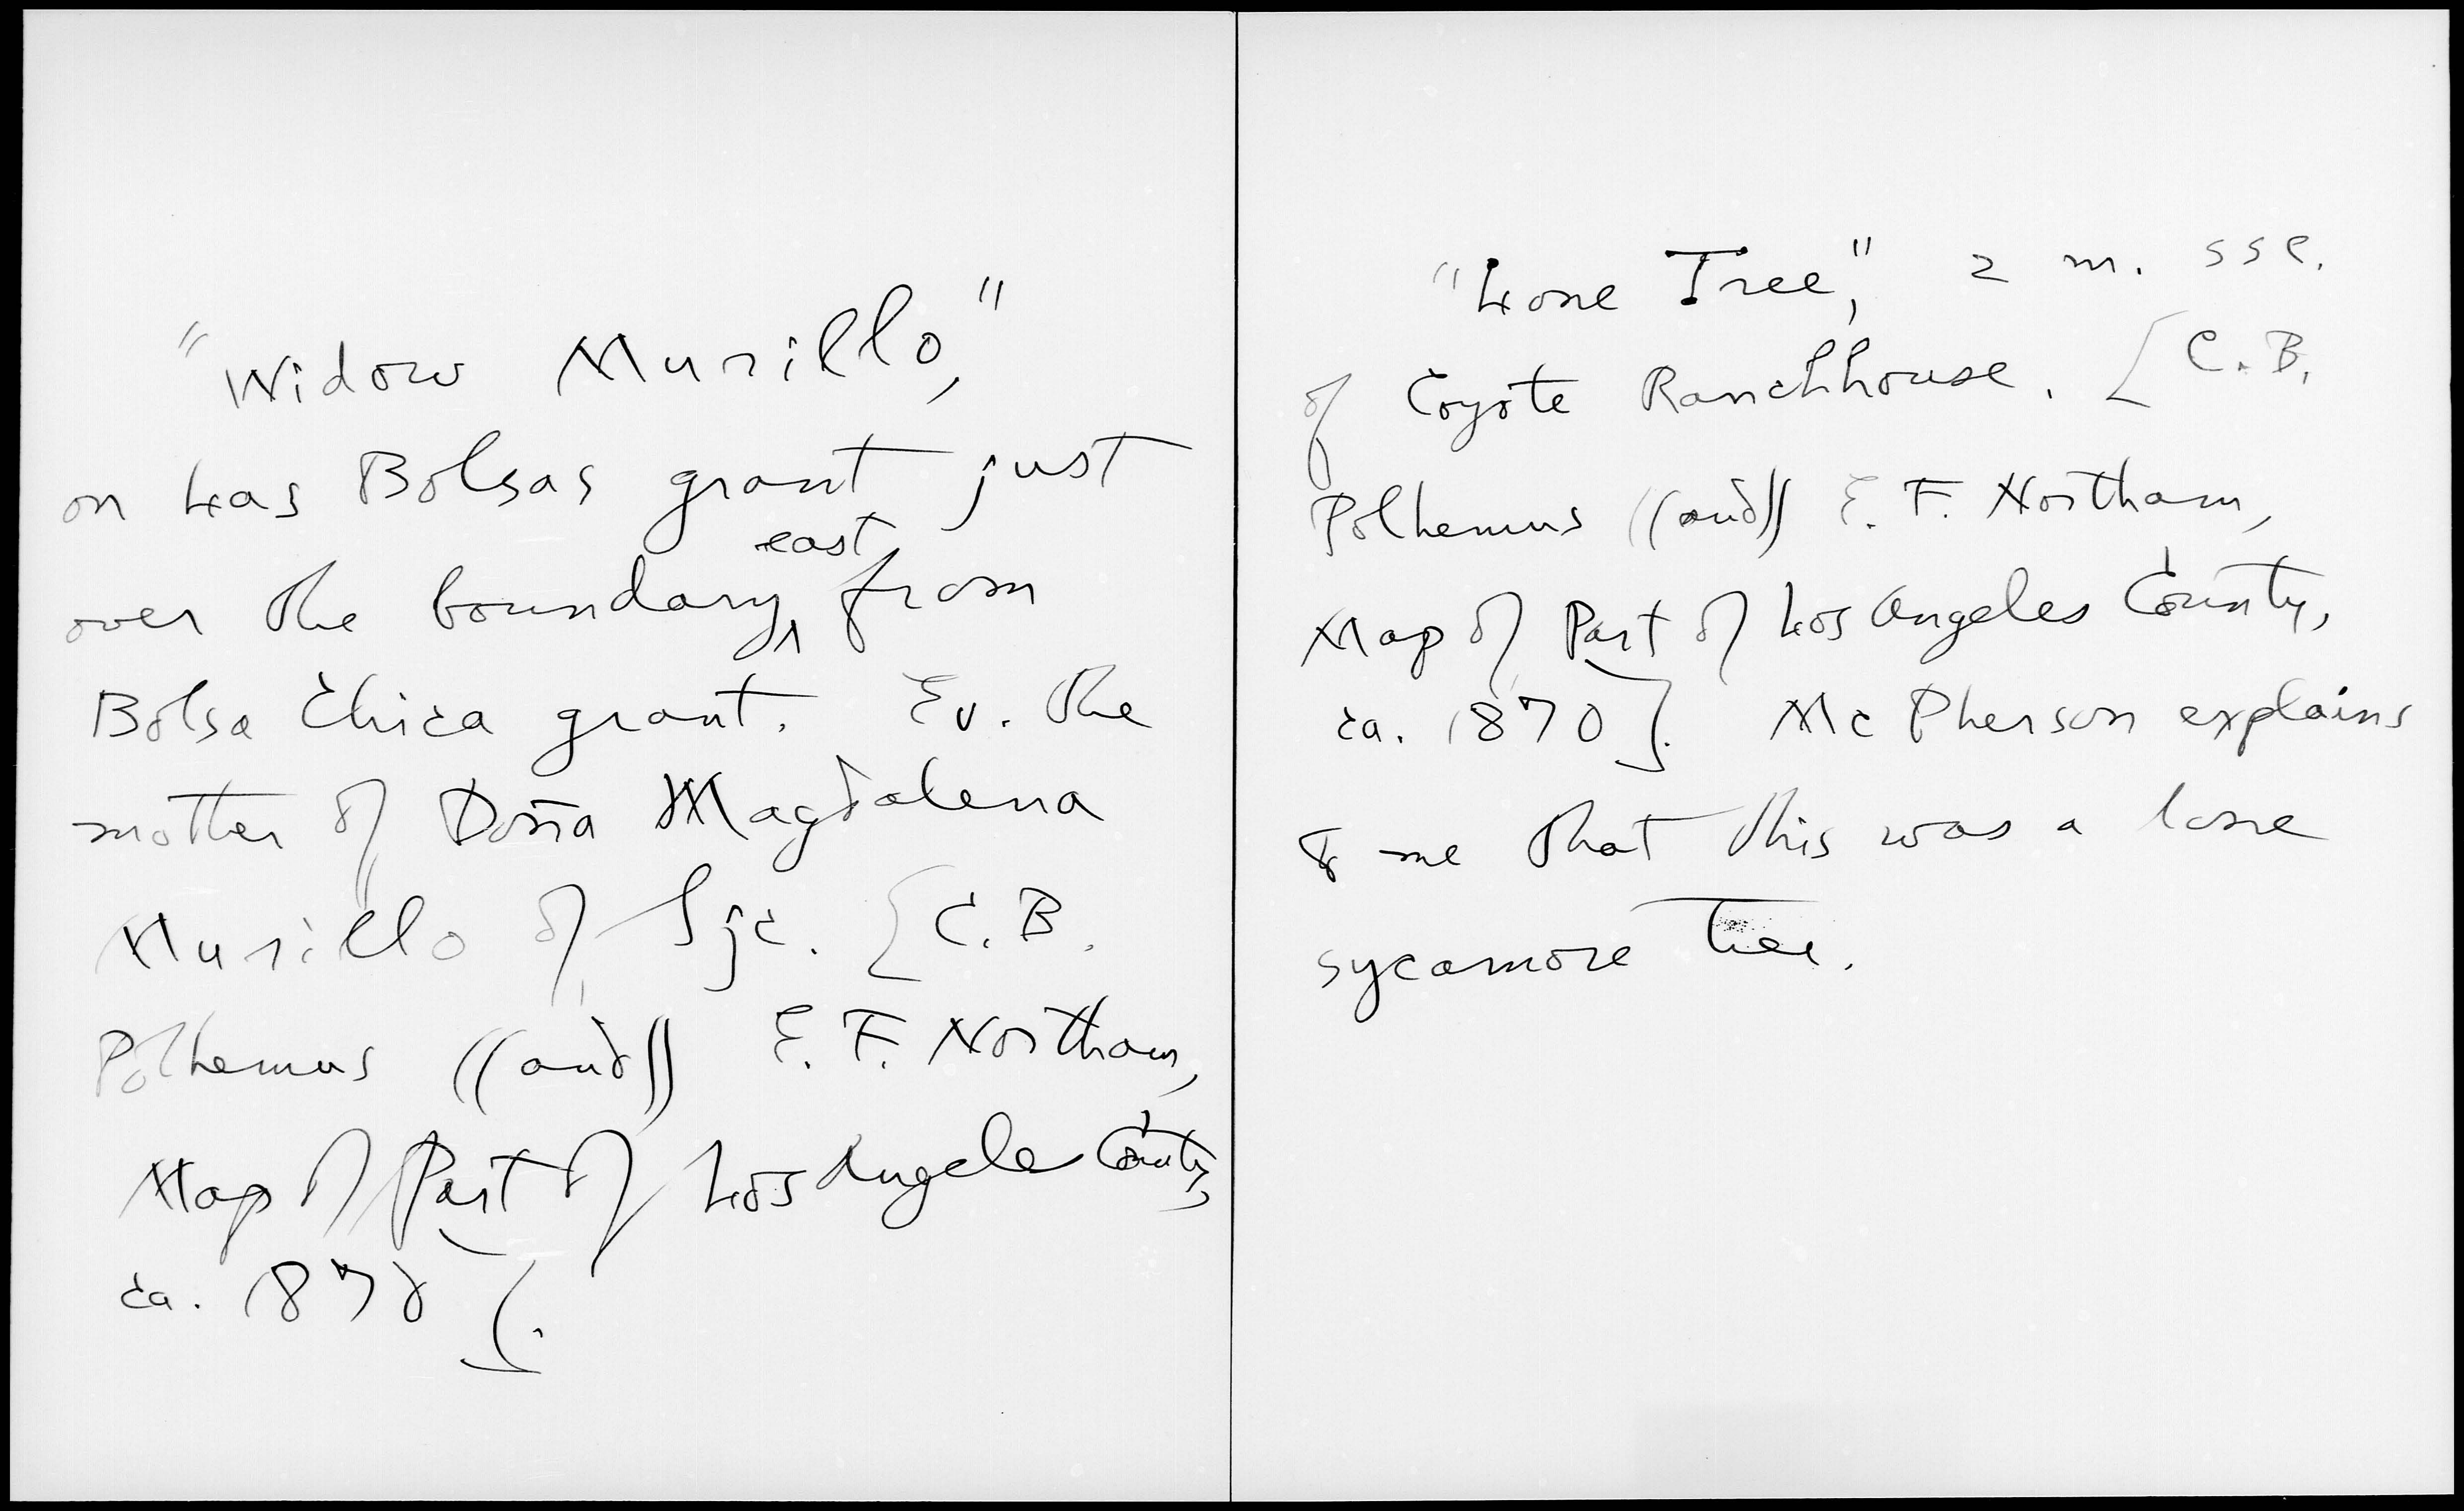 "Widow Murillo,"
on Las Bolsas grant just
over the boundary east from
Bolsa Chica grant. Ev. the
mother of Doña Magdalena
Murillo of Sjc. [C. B.
Polhemus ((and)) E. F. Northam,
Map of Part of Los Angeles County,
ca. 1870].
"Lone Tree", 2 m. sse.
of Coyote Ranchhouse. [C. B.
Polhemus ((and)) E. F. Northam,
Map of Part of Los Angeles County,
ca. 1870]. McPherson explains
to me that this was a lone
sycamore tree.